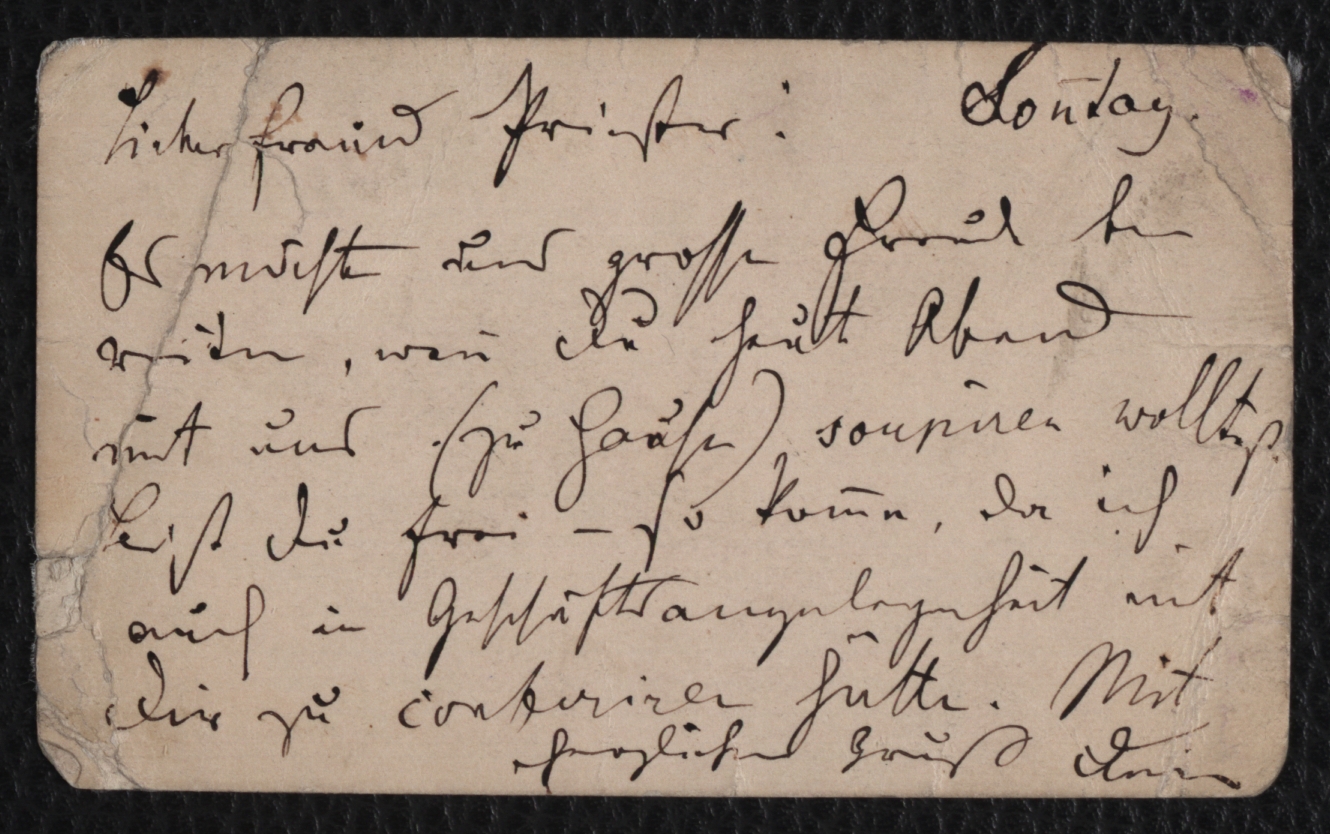 Lieber Freund Priester! Sonntag.
Es möchte uns grosse Freude be
reiten, wen̄ Du heut Abend
mit uns (zu Hause) soupiren wolltest.
Bist Du frei – so kom̄e, da ich
auch in Geschäftsangelegenheit mit
Dir zu conferiren hätte. Mit
herzlichem Gruß Dein